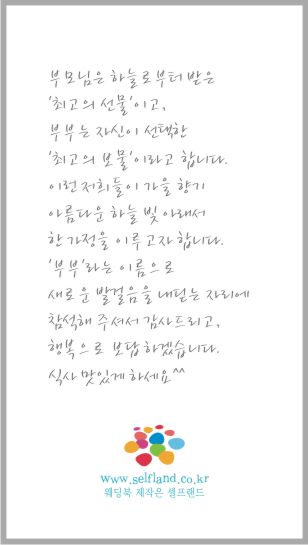 부모님은 하늘로부터 받은
'최고의 선물'이고,
부부는 자신이 선택한
'최고의 보물'이라고 합니다.
이런 저희들이 가을 향기
아름다운 하늘 빛 아래서
한 가정을 이루고자 합니다.
'부부'라는 이름으로
새로운 발걸음을 내딛는 자리에
참석해 주셔서 감사드리고,
행복으로 보답하겠습니다.
식사 맛있게 하세요^^
www.selfland.co.kr
웨딩북 제작은 셀프랜드